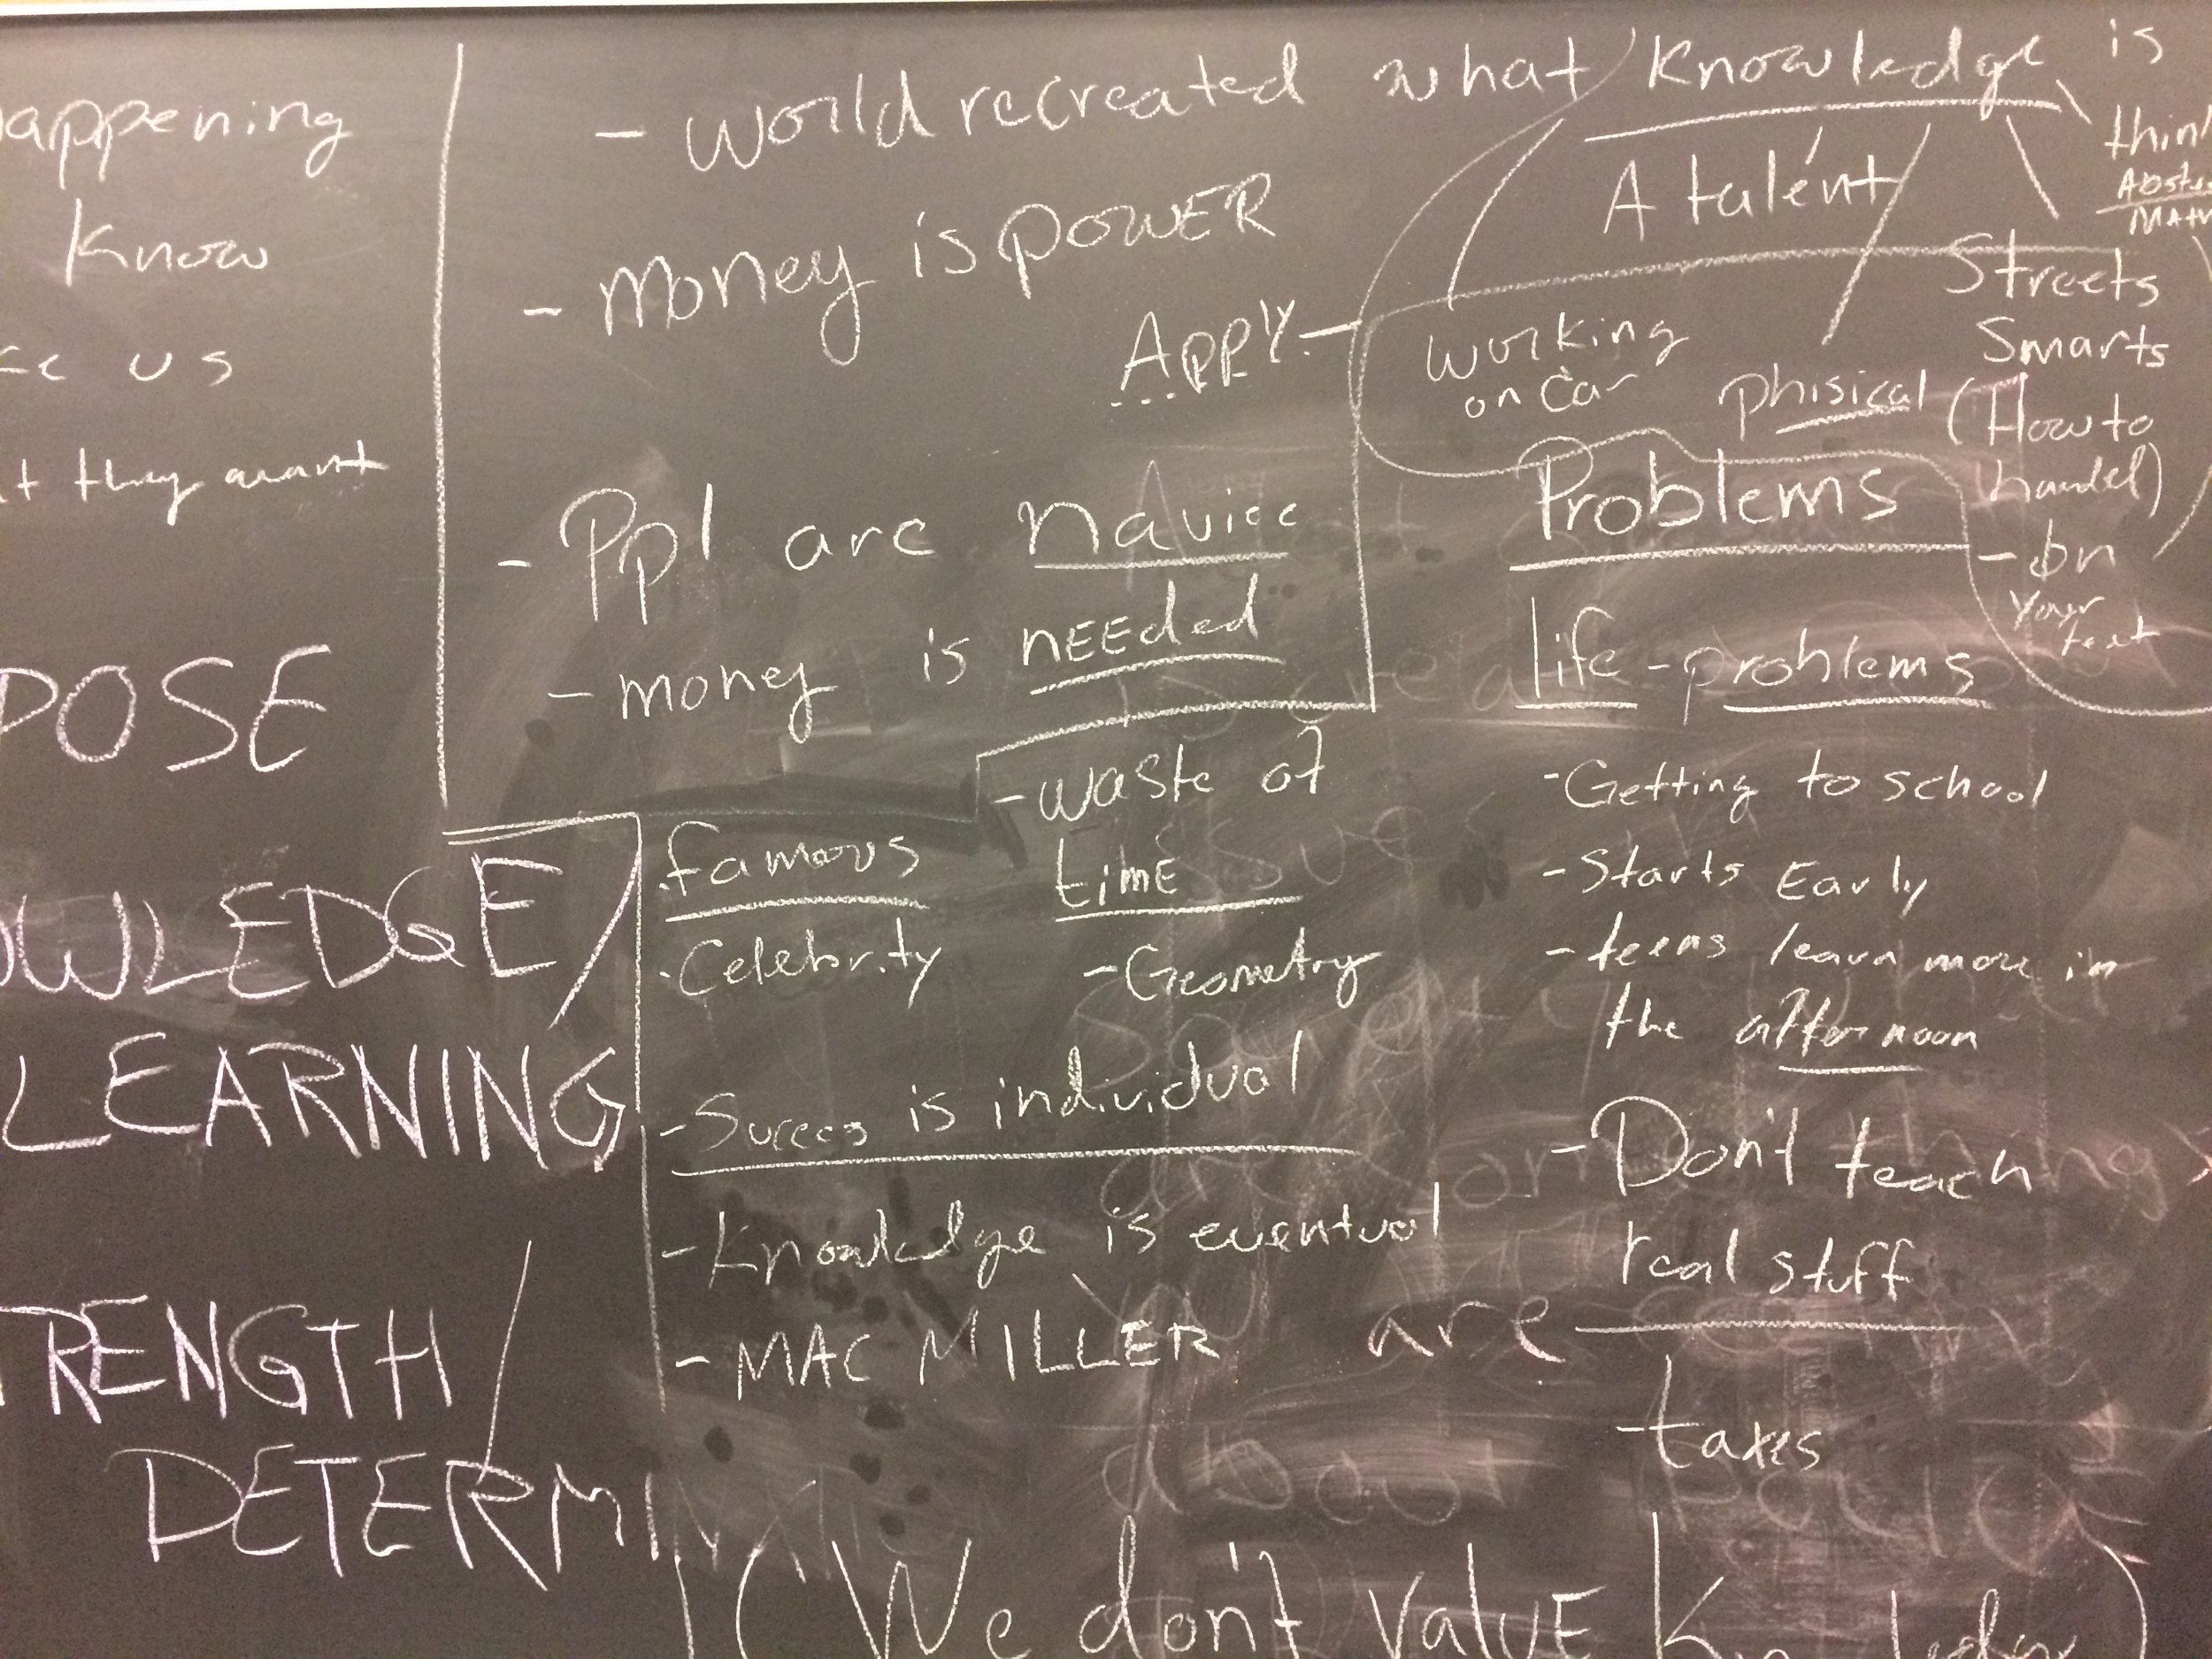 appening
Know
us
they want
POSE
OWLEDGE/
LEARNING
RENGTH/
DETERMIN
- World recreated what Knowledge is
- Money is POWER
APPLY.
- Ppl are naviee
- money is nEEded
A talent
think
working
on car
Phisical
Streets
Smarts
(How to
handel)
- on
your
feet
Problems
life - problems
- Getting to school
- Starts Early
- teens learn more in
the afternoon
- Don't teach
real stuff
- taxes
- waste of
timE
- Geometry
.famous
.Celebrity
- Success is individual
- Knowledge is eventual
- MAC MILLER
are
about
police
(We don't ValuE